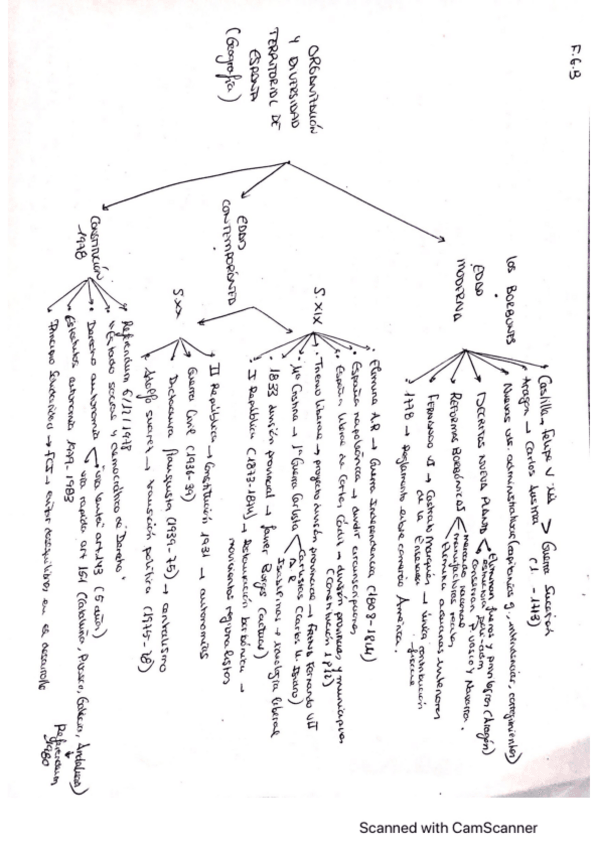 F.G.B
ORGANIZACIÓN
Y DIVERSIDAD
TERRITORIAL DE
ESPAÑA
(Geografía)
LOS BORBONES
EDAD
MODERNA
Castilla, Felipe V
Aragón → Carlos
> Guerra Sucesión
Nuevas uds. administrativas (capitanías g., intendencias, corregimientos)
DECRETOS NUEVA PLANTA
Eliminan fueros y privilegios (Aragón)
conservan P. Vasco y Navarra.
REFORMAS BORBÓNICAS
mercado nacional
manufacturas reales
Elimina aduanas interiores
FERNANDO VI → Catastro Marqués de la Ensenada → única contribución
1778 → Reglamento sobre comercio América.
EDAD
CONTEMPORÁNEA
S. XIX
Elimina A.R → Guerra Independencia (1808-1814)
España napoleónica → dividir circunscripciones
España liberal de Cortes Cádiz → división provincias y municipios
(Constitución 1812)
Trienio Liberal → proyecto división provincias → Frena Fernando VII
Mª Cristina → 1ª Guerra Carlista
Carlistas (Carlos Mª Isidro)
A.R
Isabelinos → ideología liberal
1833 división provincial → Javier Burgos (actual)
I República (1873-1874) → Restauración borbónica →
movimientos regionalistas
S. XX
II República → Constitución 1931 → autonomías
Guerra Civil (1936-39)
Dictadura franquista (1939-75) → centralismo
Adolfo Suarez → transición política (1975-78)
CONSTITUCIÓN
1978
Referendum 6/12/1978
"Estado social y democrático de Derecho"
Derecho autonomía
vía lenta: art. 143 (5 años)
vía rápida art 151 (Cataluña, P. Vasco, Galicia, Andalucía)
Referendum
1980
Estatutos autonomía 1979-1983
Principio Solidaridad → FCI → evitar desequilibrios en el desarrollo
Scanned with CamScanner